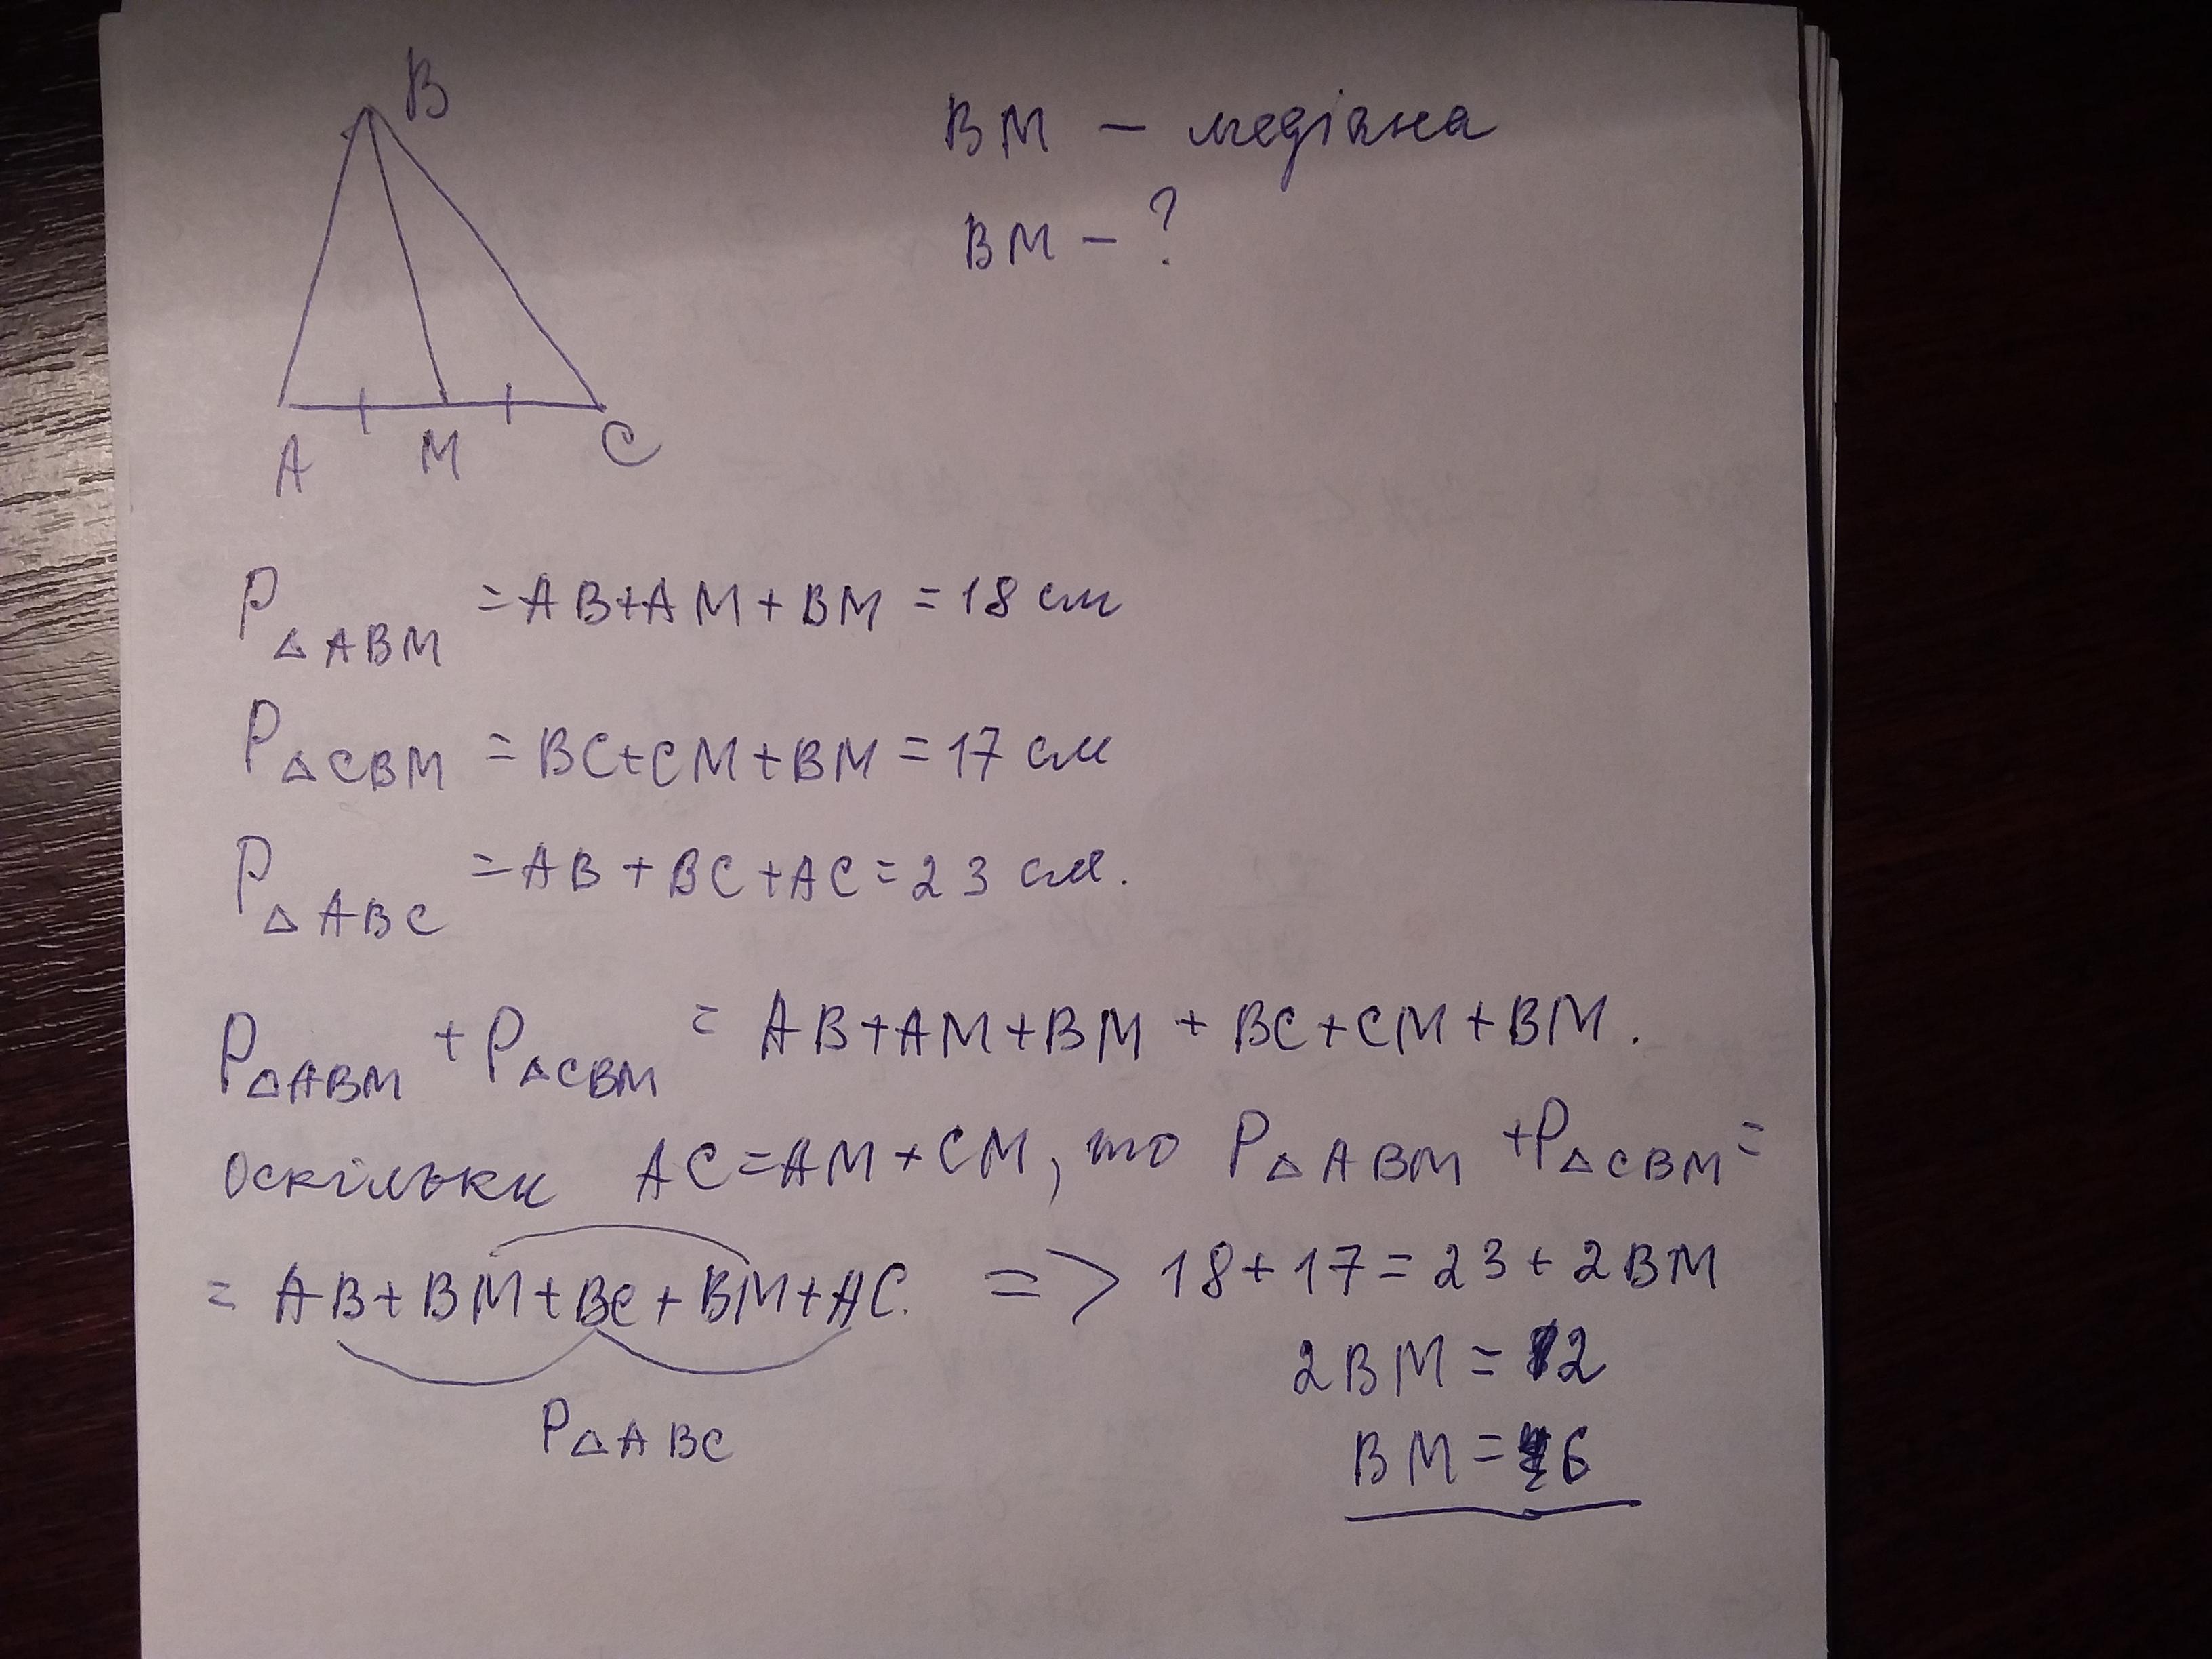 B
A M C
BM – медіана
BM – ?
P△ABM = AB+AM+BM = 18 см
P△CBM = BC+CM+BM = 17 см
P△ABC = AB + BC + AC = 23 см.
P△ABM + P△CBM = AB+AM+BM + BC+CM+BM.
Оскільки AC=AM+CM, то P△ABM + P△CBM =
= AB+BM+BC+BM+AC. => 18+17=23+2BM
P△ABC
2BM = 12
BM = 6